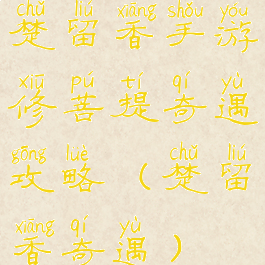 chǔ liú xiāng shǒu yóu
楚留香手游
xiū pú tí qí yù
修菩提奇遇
gōng lüè chǔ liú
攻略（楚留
xiāng qí yù
香奇遇）